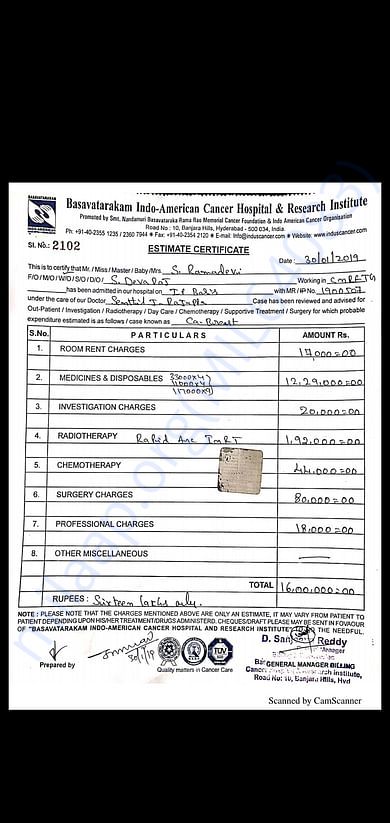 BASAVATARAKAM
INDO AMERICAN
CANCER HOSPITAL
Basavatarakam Indo-American Cancer Hospital & Research Institute
Promoted by Smt. Nandamuri Basavataraka Rama Rao Memorial Cancer Foundation & Indo American Cancer Organisation
Road No : 10, Banjara Hills, Hyderabad - 500 034, India.
Ph: +91-40-2355 1235 / 2360 7944 ★ Fax: +91-40-2354 2120 ★ E-mail: Info@induscancer.com ★ Website: www.induscancer.com
Sl. No.: 2102
ESTIMATE CERTIFICATE
Date : 30/01/2019
This is to certify that Mr. / Miss / Master / Baby/Mrs. S. Ramadevi
F/O / M/O / W/O / S/O / D/O / S. Deva Raj Working in CMRFTG
has been admitted in our hospital with MR / IP No. 1900507
under the care of our Doctor Senthil J. Rajappa Case has been reviewed and advised for
Out-Patient / Investigation / Radiotherapy / Day Care / Chemotherapy / Supportive Treatment / Surgery for which probable
expenditure estimated is as follows / case known as Ca-Breast
S.No. PARTICULARS AMOUNT Rs.
1. ROOM RENT CHARGES 17,000=00
2. MEDICINES & DISPOSABLES 12,29,000=00
3. INVESTIGATION CHARGES 20,000=00
4. RADIOTHERAPY Rapid Arc IMRT 1,92,000=00
5. CHEMOTHERAPY 44,000=00
6. SURGERY CHARGES 80,000=00
7. PROFESSIONAL CHARGES 18,000=00
8. OTHER MISCELLANEOUS —
TOTAL 16,00,000=00
RUPEES : Sixteen lakhs only.
NOTE : PLEASE NOTE THAT THE CHARGES MENTIONED ABOVE ARE ONLY AN ESTIMATE, IT MAY VARY FROM PATIENT TO
PATIENT DEPENDING UPON HIS/HER TREATMENT/DRUGS ADMINISTERD. CHEQUES/DRAFT PLEASE MAY BE SENT IN FOVAOUR
OF "BASAVATARAKAM INDO-AMERICAN CANCER HOSPITAL AND RESEARCH INSTITUTE" TO DO THE NEEDFUL.
30/1/19
Prepared by
TUV
Quality matters in Cancer Care
D. Reddy
Manager
GENERAL MANAGER BILLING
Research Institute,
Road No: 10, Banjara Hills, Hyd
Scanned by CamScanner